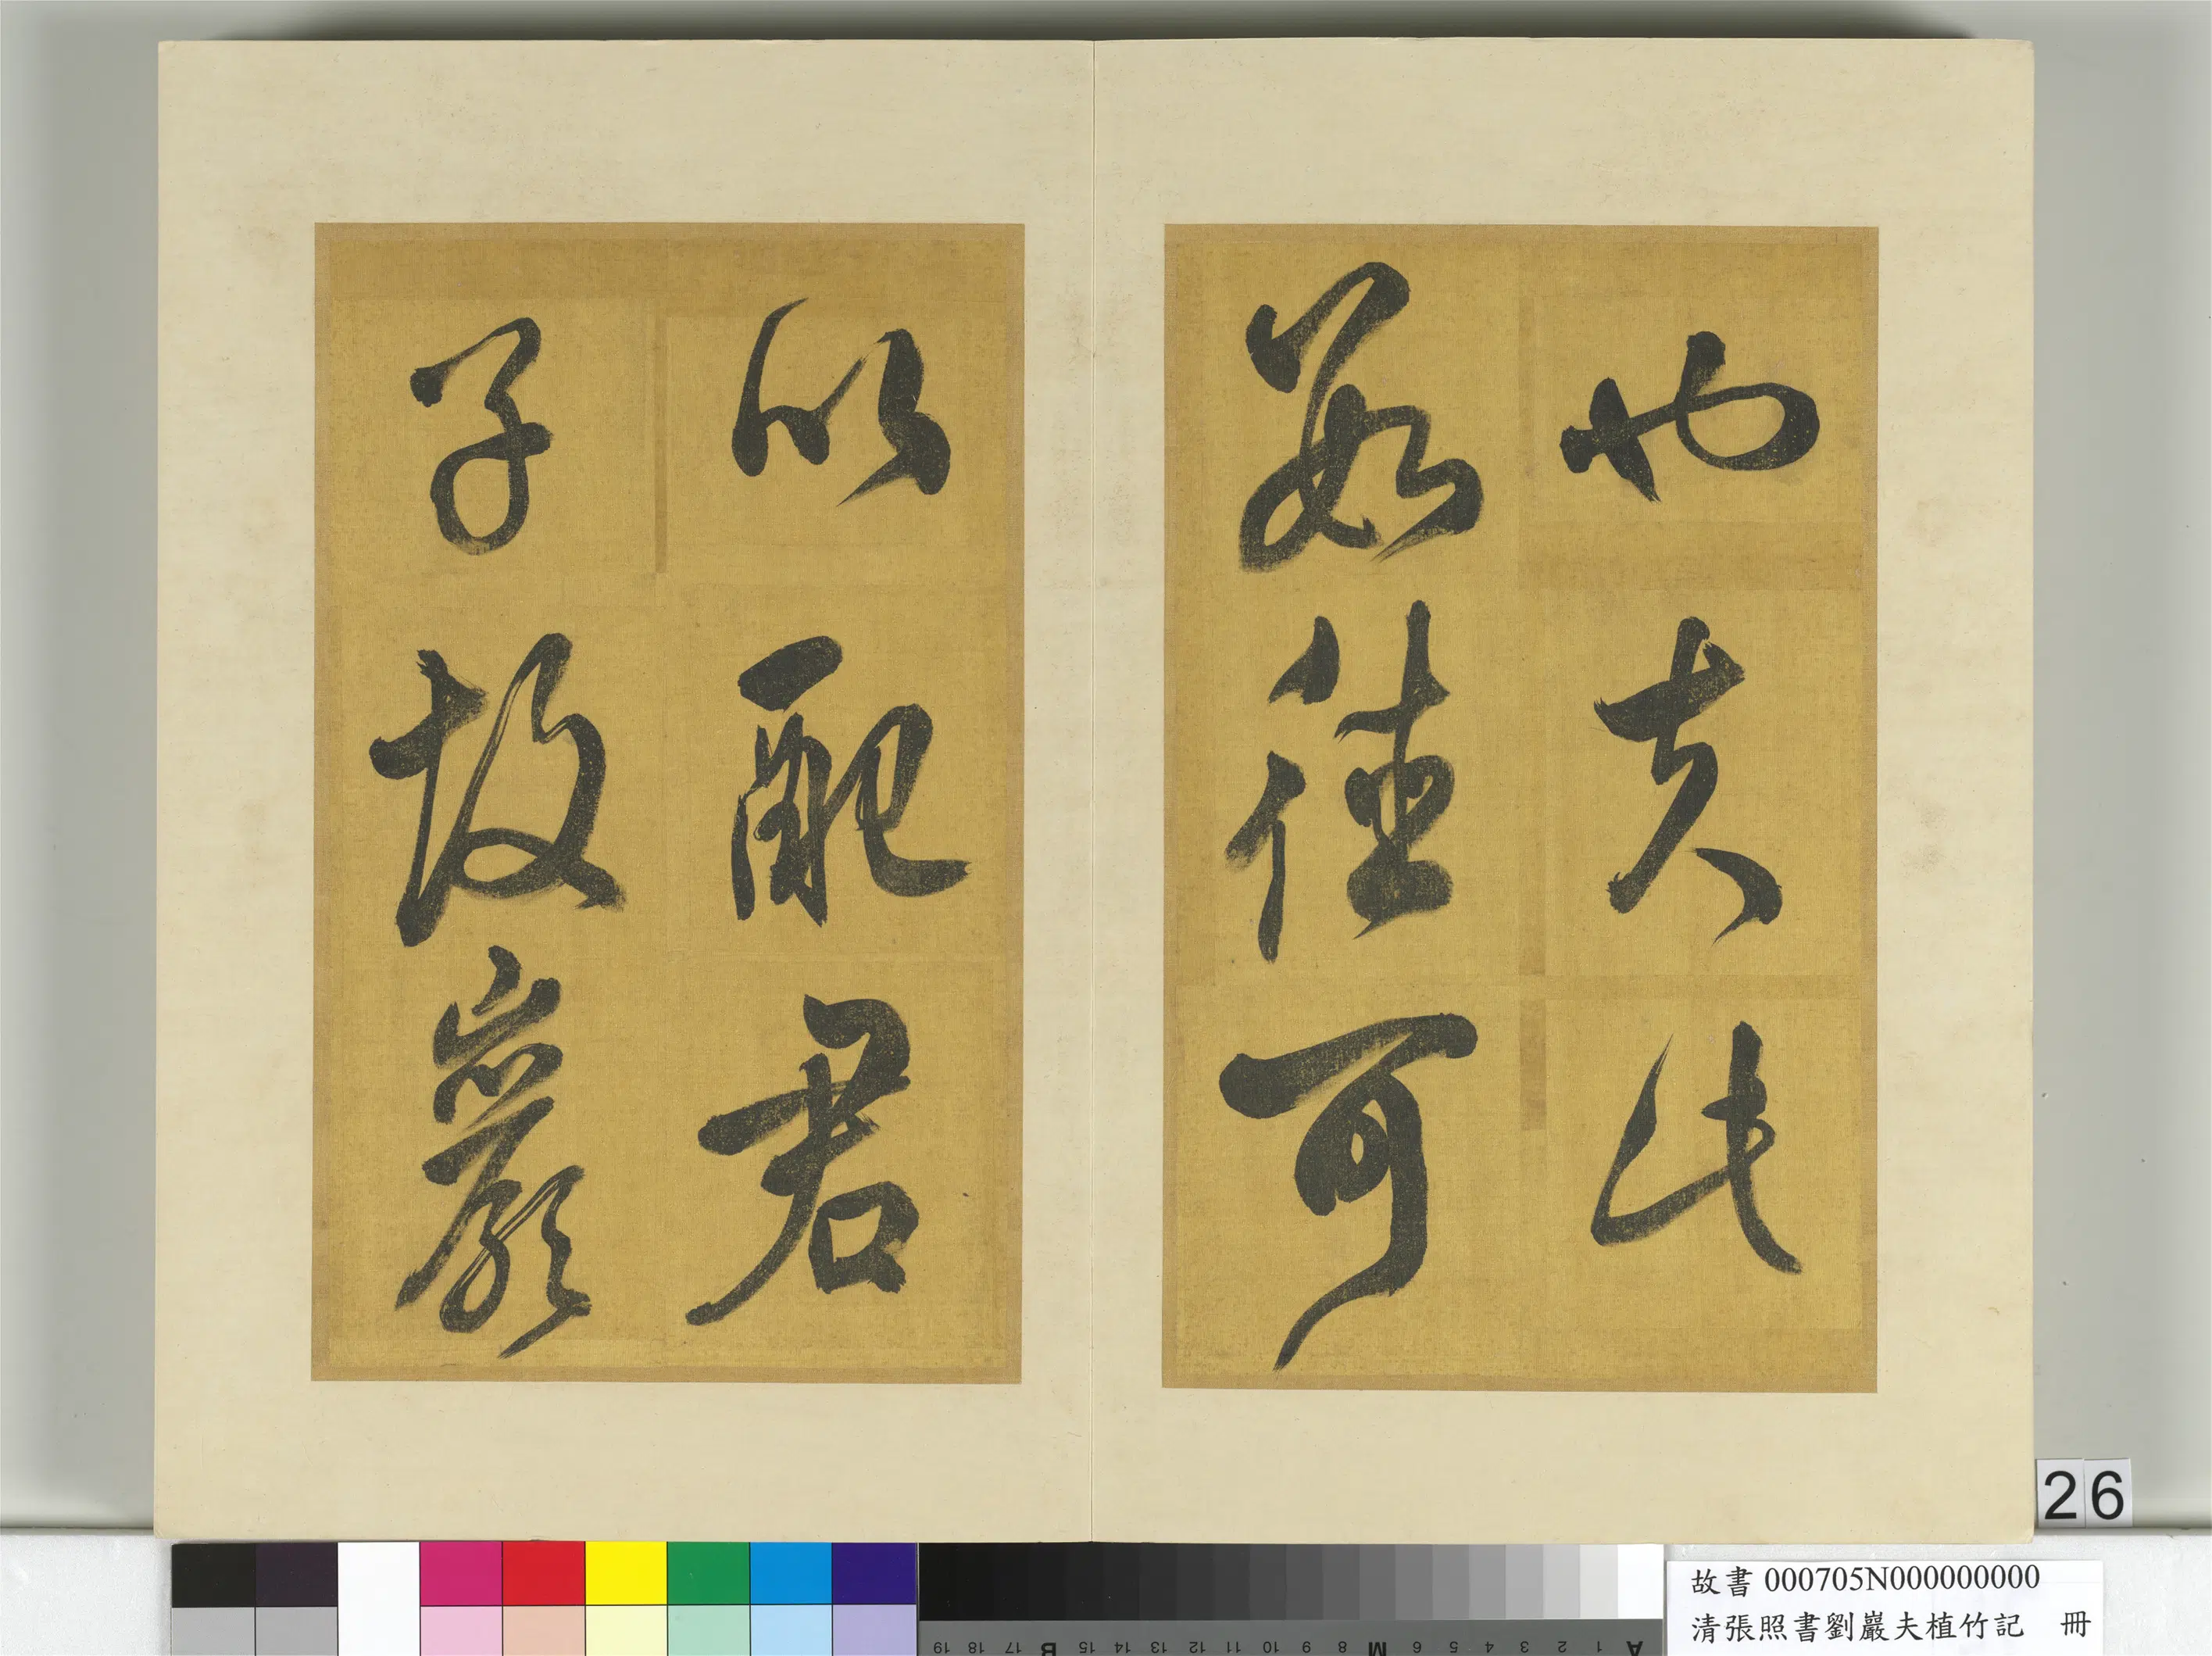 也夫此
數德可
以配君
子故巖
26
故書 000705N000000000
清張照書劉巖夫植竹記 冊
A 1 2 3 4 5 6 M 8 9 10 11 12 13 14 15 B 17 18 19